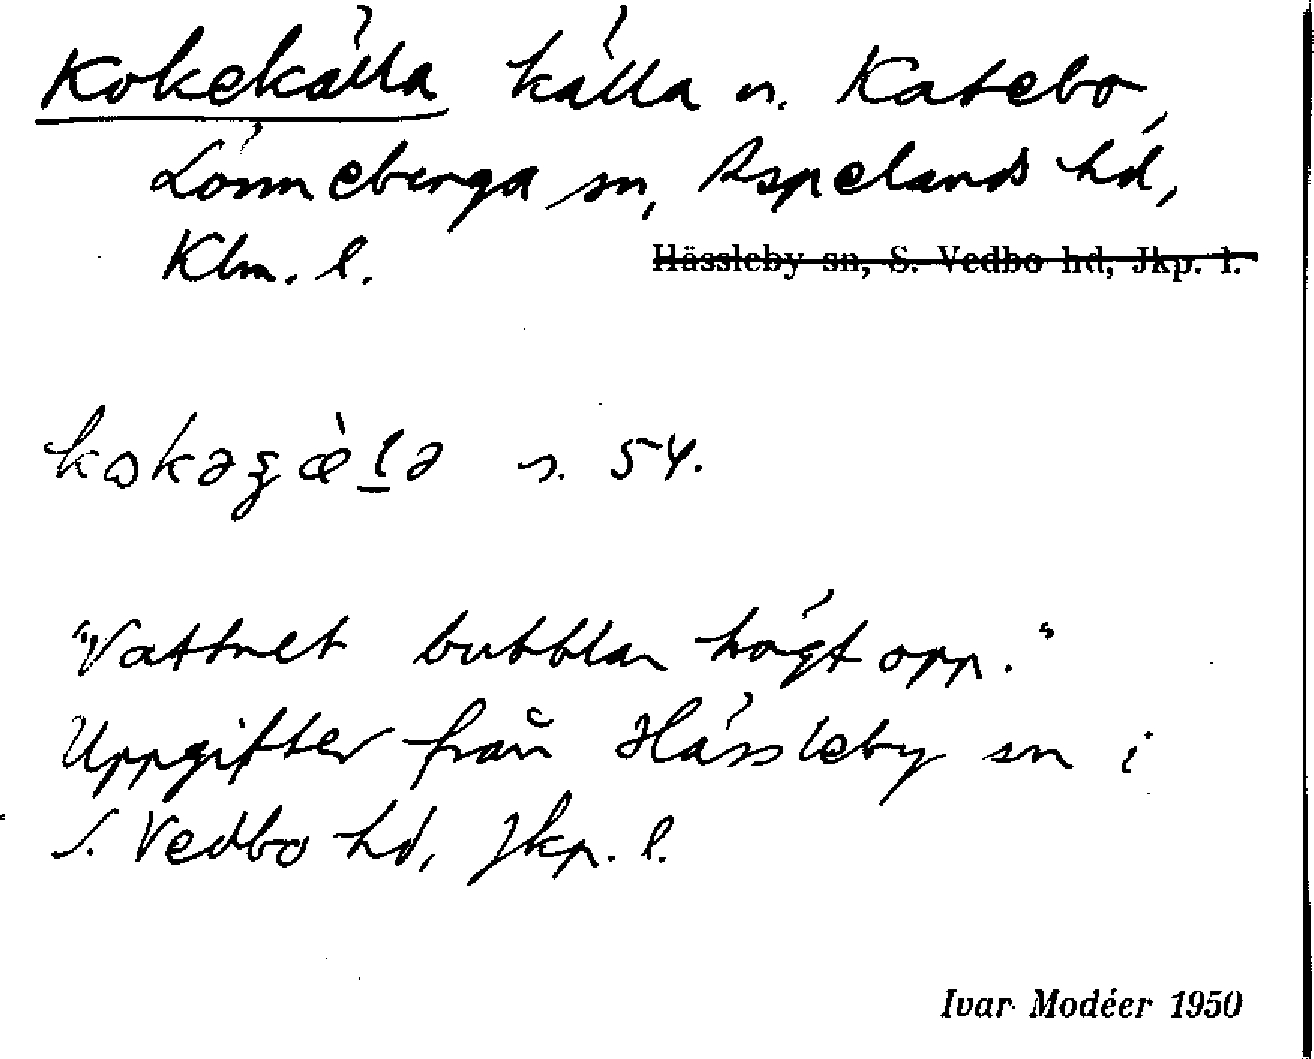 Kokekälla källa n. Katebo,
Lönneberga sn, Aspelands hd,
Klm. l. Hässleby sn, S. Vedbo hd, Jkp. l.
s. 54.
"Vattnet bubblar högt opp."
Uppgifter från Hässleby sn i
S. Vedbo hd, Jkp. l.
Ivar Modéer 1950